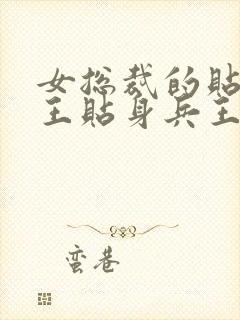 女总裁的贴
王贴身兵王
蛮巷